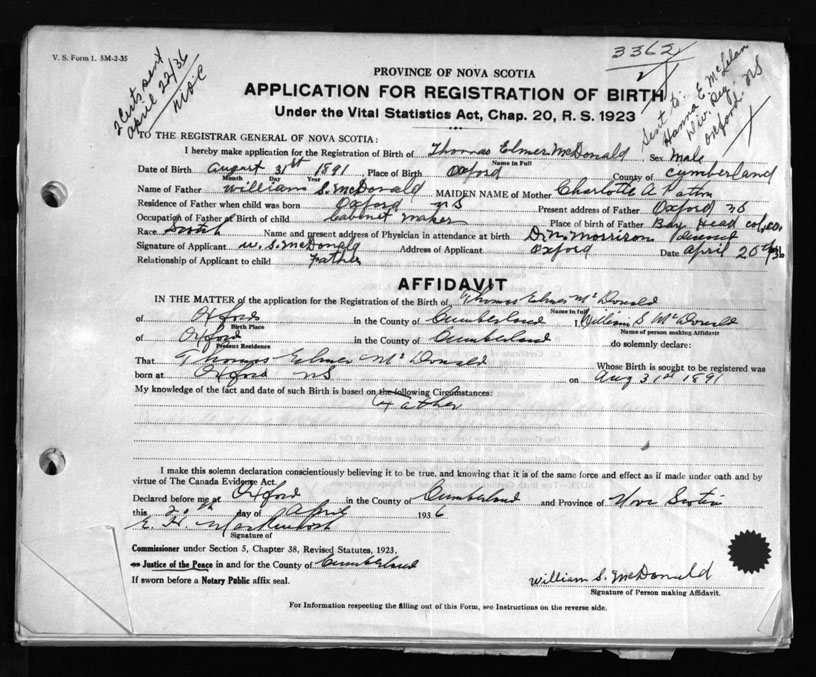 V. S. Form 1. 5M-2-35
2 Certs sent
April 22/36
3362
Sent to:
Hanna E. McLelan
Div. Reg.
Oxford. NS
PROVINCE OF NOVA SCOTIA
APPLICATION FOR REGISTRATION OF BIRTH
Under the Vital Statistics Act, Chap. 20, R. S. 1923
TO THE REGISTRAR GENERAL OF NOVA SCOTIA:
I hereby make application for the Registration of Birth of Thomas Elmer McDonald Sex Male
Name in Full
Date of Birth August 31st 1891 Place of Birth Oxford County of Cumberland
Month Day Year
Name of Father William S. McDonald MAIDEN NAME of Mother Charlotte A
Residence of Father when child was born Oxford NS Present address of Father Oxford
Occupation of Father at Birth of child Cabinet maker Place of birth of Father Bay Head Col. co.
Race Scotch Name and present address of Physician in attendance at birth Dr. Morrison
Signature of Applicant W. S. McDonald Address of Applicant Oxford Date April 20th/36
Relationship of Applicant to child Father
AFFIDAVIT
IN THE MATTER of the application for the Registration of the Birth of Thomas Elmer McDonald
Name in full
of Oxford in the County of Cumberland I, William S. McDonald
Birth Place Name of person making Affidavit
of Oxford in the County of Cumberland do solemnly declare:
Present Residence
That Thomas Elmer McDonald Whose Birth is sought to be registered was
born at Oxford NS on Aug 31st 1891
My knowledge of the fact and date of such Birth is based on the following Circumstances:
Father
I make this solemn declaration conscientiously believing it to be true, and knowing that it is of the same force and effect as if made under oath and by
virtue of The Canada Evidence Act.
Declared before me at Oxford in the County of Cumberland and Province of Nova Scotia
this 20th day of April 1936
E. H. Mackintosh
Signature of
Commissioner under Section 5, Chapter 38, Revised Statutes, 1923,
or Justice of the Peace in and for the County of Cumberland
If sworn before a Notary Public affix seal.
William S. McDonald
Signature of Person making Affidavit.
For Information respecting the filling out of this Form, see Instructions on the reverse side.